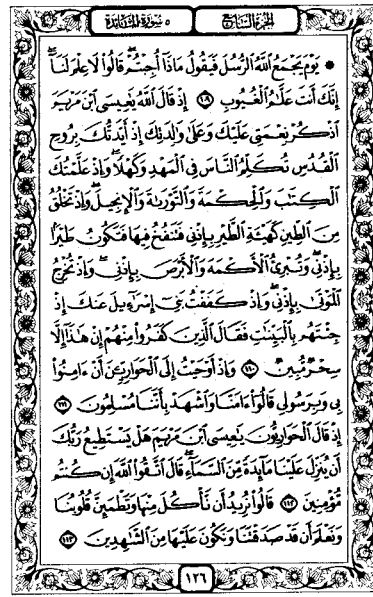 الجزء السابع
٥ سورة المائدة
۞ يَوْمَ يَجْمَعُ اللَّهُ الرُّسُلَ فَيَقُولُ مَاذَا أُجِبْتُمْ ۖ قَالُوا لَا عِلْمَ لَنَا ۖ
إِنَّكَ أَنتَ عَلَّامُ الْغُيُوبِ ١٠٩ إِذْ قَالَ اللَّهُ يَاعِيسَى ابْنَ مَرْيَمَ
اذْكُرْ نِعْمَتِي عَلَيْكَ وَعَلَىٰ وَالِدَتِكَ إِذْ أَيَّدتُّكَ بِرُوحِ
الْقُدُسِ تُكَلِّمُ النَّاسَ فِي الْمَهْدِ وَكَهْلًا ۖ وَإِذْ عَلَّمْتُكَ
الْكِتَابَ وَالْحِكْمَةَ وَالتَّوْرَاةَ وَالْإِنجِيلَ ۖ وَإِذْ تَخْلُقُ
مِنَ الطِّينِ كَهَيْئَةِ الطَّيْرِ بِإِذْنِي فَتَنفُخُ فِيهَا فَتَكُونُ طَيْرًا
بِإِذْنِي ۖ وَتُبْرِئُ الْأَكْمَهَ وَالْأَبْرَصَ بِإِذْنِي ۖ وَإِذْ تُخْرِجُ
الْمَوْتَىٰ بِإِذْنِي ۖ وَإِذْ كَفَفْتُ بَنِي إِسْرَائِيلَ عَنكَ إِذْ
جِئْتَهُم بِالْبَيِّنَاتِ فَقَالَ الَّذِينَ كَفَرُوا مِنْهُمْ إِنْ هَٰذَا إِلَّا
سِحْرٌ مُّبِينٌ ١١٠ وَإِذْ أَوْحَيْتُ إِلَى الْحَوَارِيِّينَ أَنْ ءَامِنُوا
بِي وَبِرَسُولِي قَالُوا ءَامَنَّا وَاشْهَدْ بِأَنَّنَا مُسْلِمُونَ ١١١
إِذْ قَالَ الْحَوَارِيُّونَ يَاعِيسَى ابْنَ مَرْيَمَ هَلْ يَسْتَطِيعُ رَبُّكَ
أَن يُنَزِّلَ عَلَيْنَا مَائِدَةً مِّنَ السَّمَاءِ ۖ قَالَ اتَّقُوا اللَّهَ إِن كُنتُم
مُّؤْمِنِينَ ١١٢ قَالُوا نُرِيدُ أَن نَّأْكُلَ مِنْهَا وَتَطْمَئِنَّ قُلُوبُنَا
وَنَعْلَمَ أَن قَدْ صَدَقْتَنَا وَنَكُونَ عَلَيْهَا مِنَ الشَّاهِدِينَ ١١٣
١٢٦